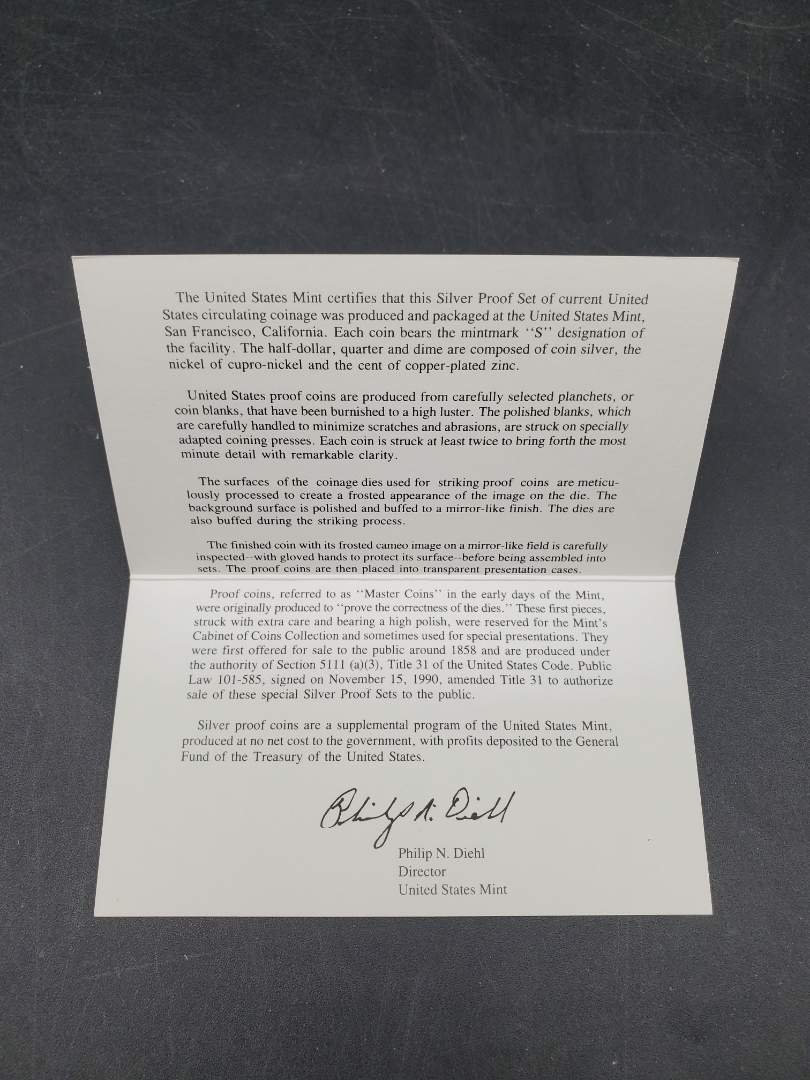 The United States Mint certifies that this Silver Proof Set of current United
States circulating coinage was produced and packaged at the United States Mint,
San Francisco, California. Each coin bears the mintmark ‘‘S’’ designation of
the facility. The half-dollar, quarter and dime are composed of coin silver, the
nickel of cupro-nickel and the cent of copper-plated zinc.
United States proof coins are produced from carefully selected planchets, or
coin blanks, that have been burnished to a high luster. The polished blanks, which
are carefully handled to minimize scratches and abrasions, are struck on specially
adapted coining presses. Each coin is struck at least twice to bring forth the most
minute detail with remarkable clarity.
The surfaces of the coinage dies used for striking proof coins are meticu-
lously processed to create a frosted appearance of the image on the die. The
background surface is polished and buffed to a mirror-like finish. The dies are
also buffed during the striking process.
The finished coin with its frosted cameo image on a mirror-like field is carefully
inspected--with gloved hands to protect its surface--before being assembled into
sets. The proof coins are then placed into transparent presentation cases.
Proof coins, referred to as ‘‘Master Coins’’ in the early days of the Mint,
were originally produced to ‘‘prove the correctness of the dies.’’ These first pieces,
struck with extra care and bearing a high polish, were reserved for the Mint's
Cabinet of Coins Collection and sometimes used for special presentations. They
were first offered for sale to the public around 1858 and are produced under
the authority of Section 5111 (a)(3), Title 31 of the United States Code. Public
Law 101-585, signed on November 15, 1990, amended Title 31 to authorize
sale of these special Silver Proof Sets to the public.
Silver proof coins are a supplemental program of the United States Mint,
produced at no net cost to the government, with profits deposited to the General
Fund of the Treasury of the United States.
Philip N. Diehl
Philip N. Diehl
Director
United States Mint